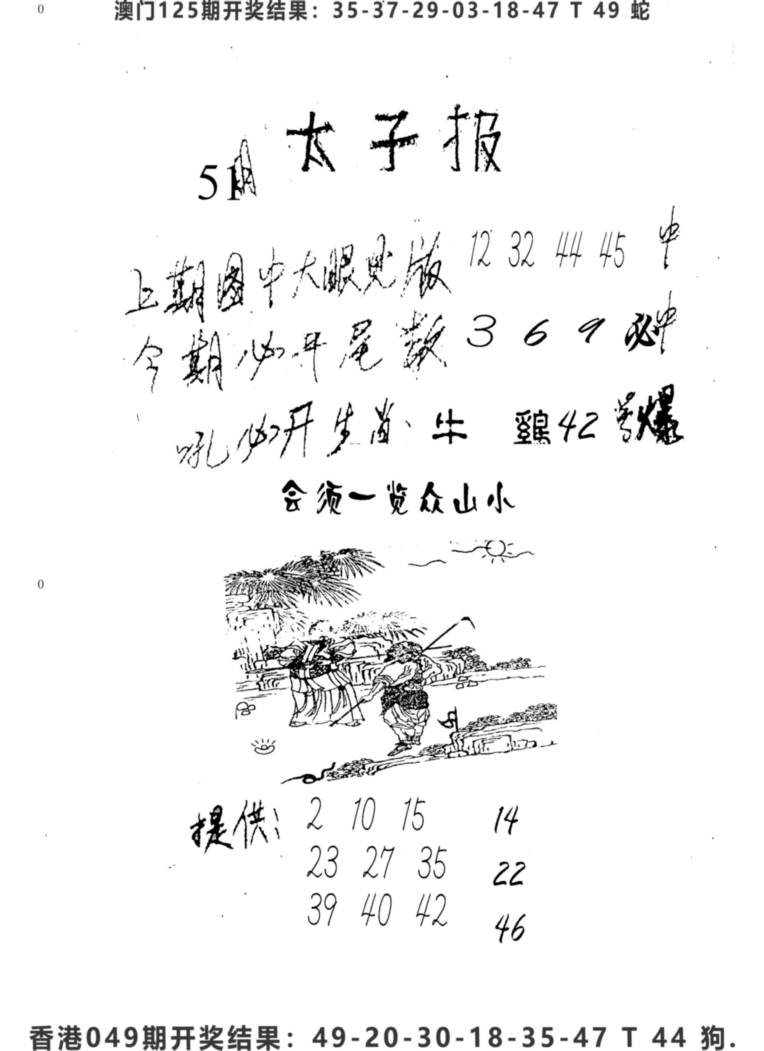 0
澳门125期开奖结果：35-37-29-03-18-47 T 49 蛇
太子报
51期
上期图中大眼见版 12 32 44 45 中
今期必开尾数 3 6 9 必中
吼必开生肖、牛 鷄42号爆
会须一览众山小
0
提供：2 10 15 14
23 27 35 22
39 40 42 46
香港049期开奖结果：49-20-30-18-35-47 T 44 狗.